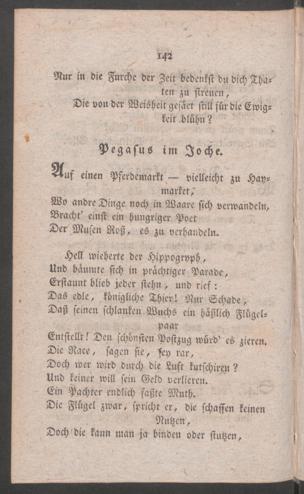 142
Nur in die Furche der Zeit bedenkst du dich Tha-
ten zu streuen,
Die von der Weisheit gesäet still für die Ewig-
keit blühn?
Pegasus im Joche.
Auf einen Pferdemarkt — vielleicht zu Hay-
market,
Wo andre Dinge noch in Waare sich verwandeln,
Bracht' einst ein hungriger Poet
Der Musen Roß, es zu verhandeln.
Hell wieherte der Hippogryph,
Und bäumte sich in prächtiger Parade,
Erstaunt blieb jeder stehn, und rief:
Das edle, königliche Thier! Nur Schade,
Daß seinen schlanken Wuchs ein häßlich Flügel-
paar
Entstellt! Den schönsten Postzug würd' es zieren.
Die Race, sagen sie, sey rar,
Doch wer wird durch die Luft kutschiren?
Und keiner will sein Geld verlieren.
Ein Pachter endlich faßte Muth.
Die Flügel zwar, spricht er, die schaffen keinen
Nutzen,
Doch die kann man ja binden oder stutzen,